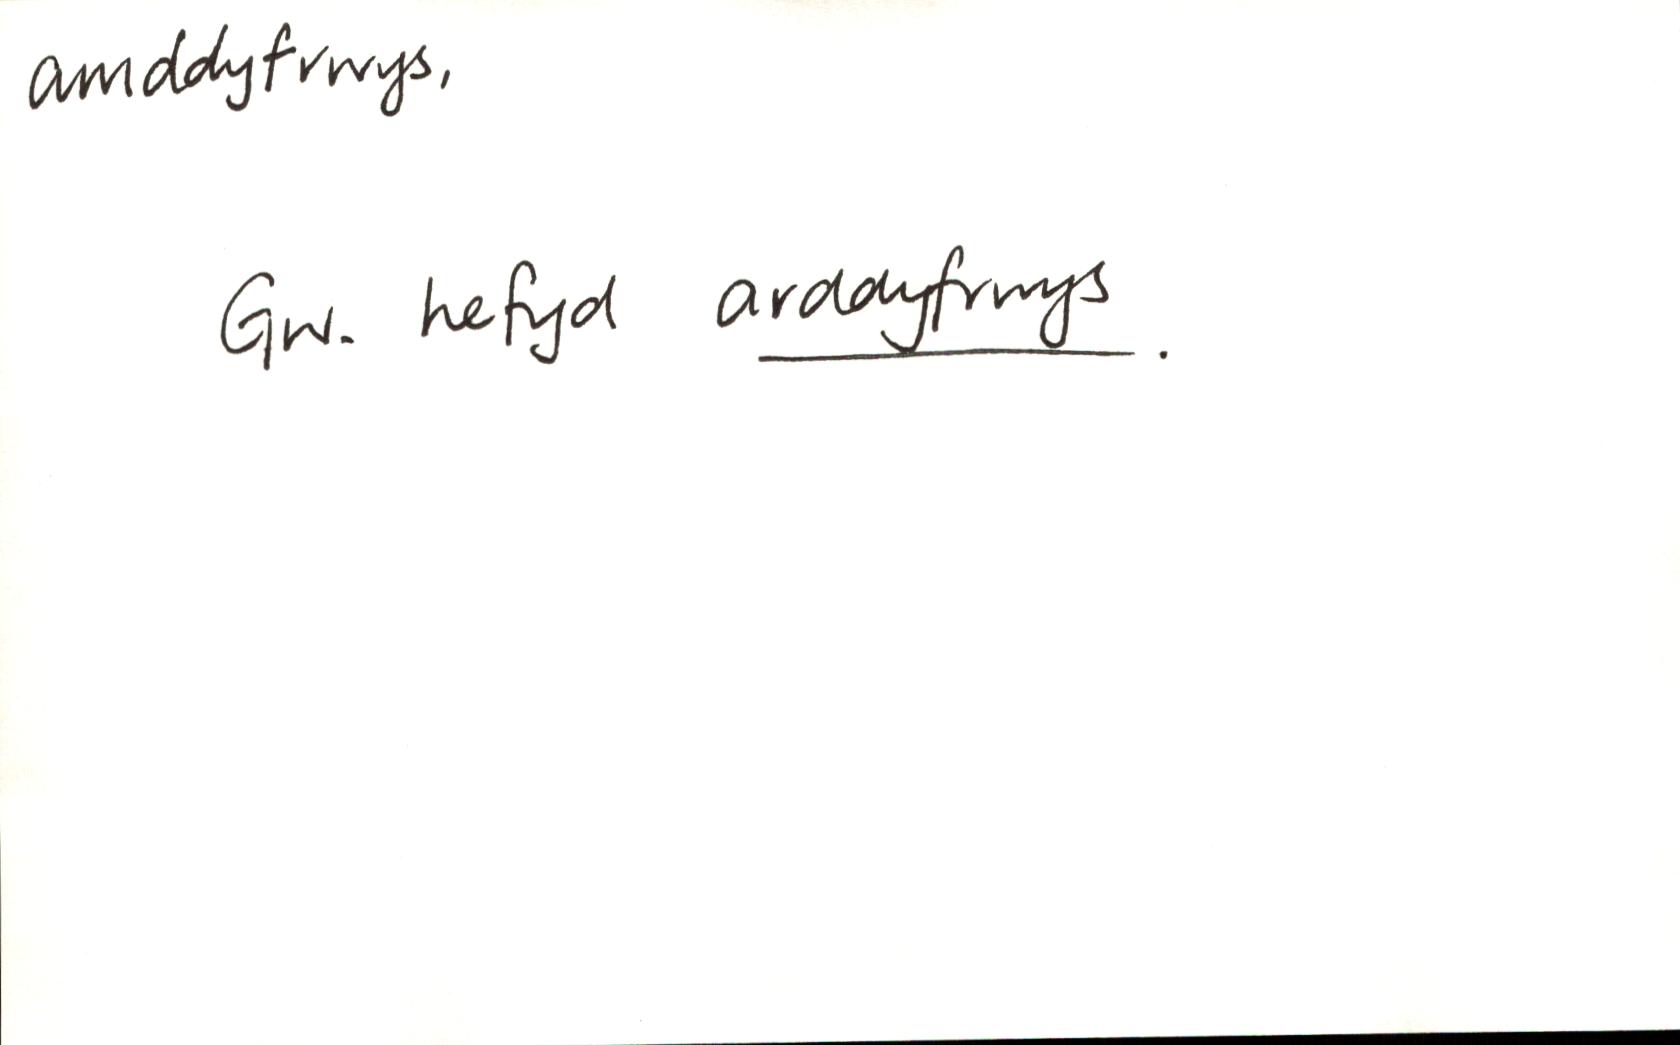 amddyfrwys,
Gw. hefyd arddyfrwys.